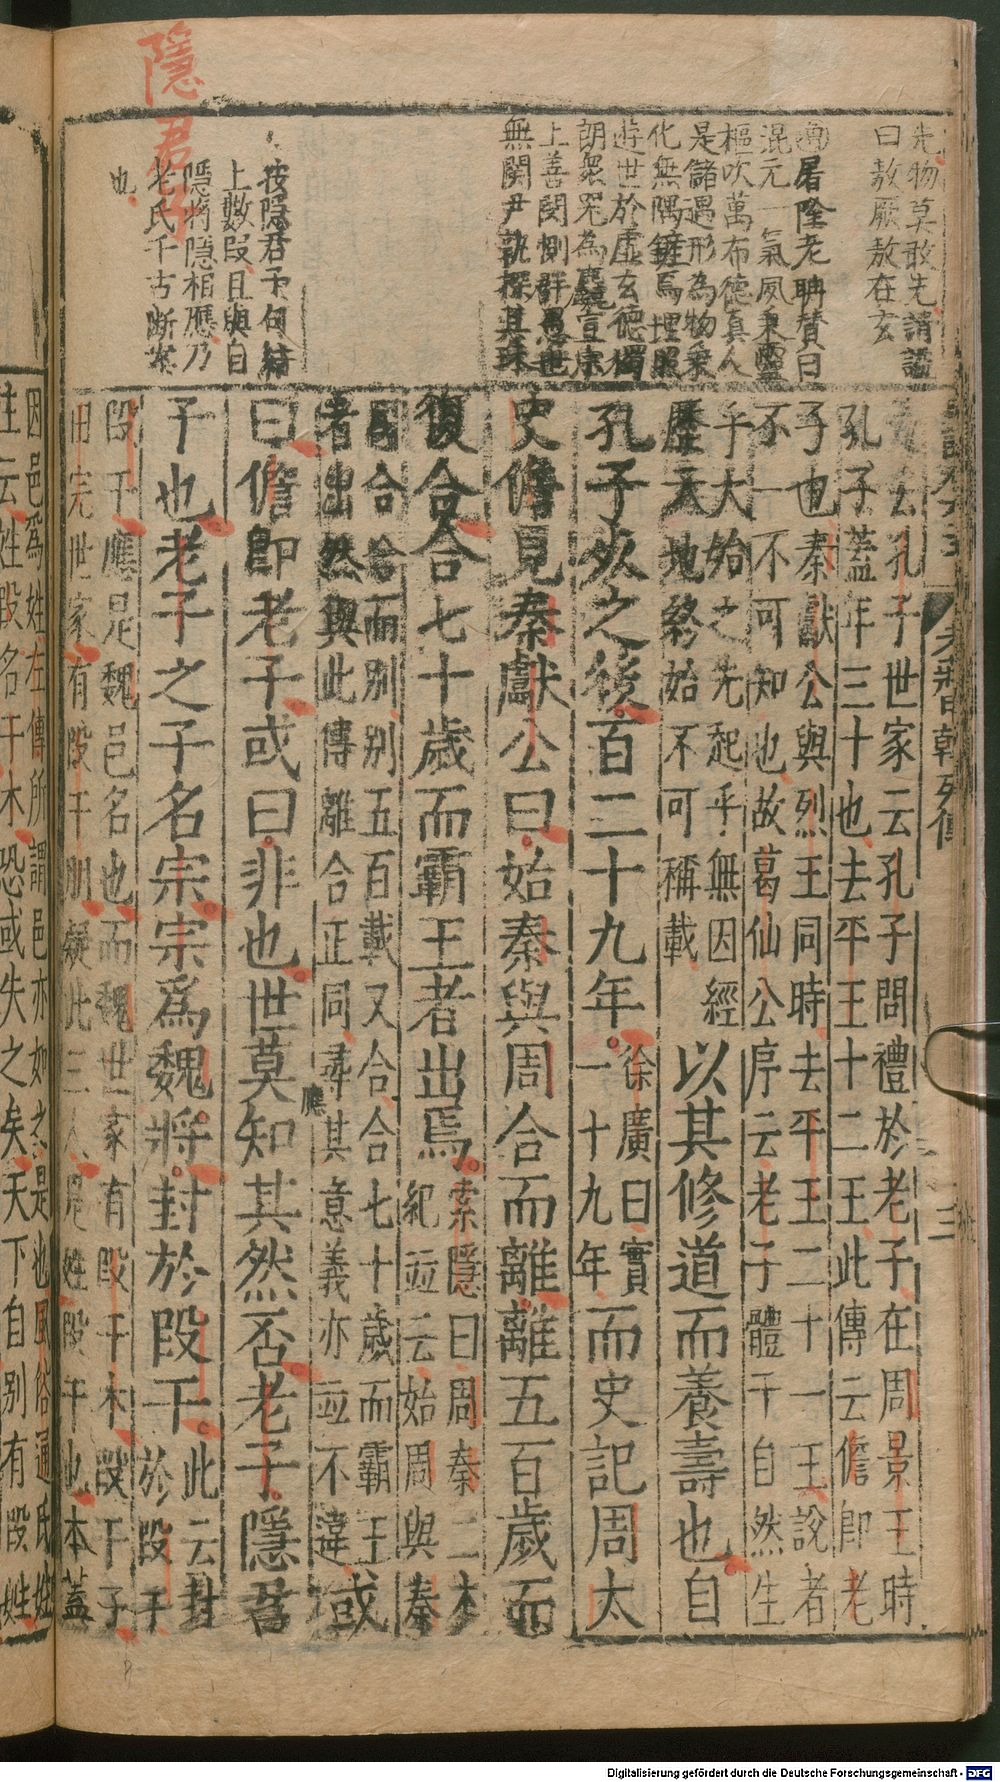 隱君子
先物莫敢先請謚
曰敖厥敖在玄
屠隆老聃贊曰
混元一氣夙秉靈
樞吹萬布德真人
是儲遇形為物乘
化無隅鏟馬埋照
遊世於虛玄德獨
朗眾罘為麤宣宗
上善閔惻群愚世
無關尹孰探其珠
按隱君子句結
上數段且與自
隱將隱相應乃
老氏千古斷案
也
老莊申韓列傳
三
云孔子世家云孔子問禮於老子在周景王時
孔子蓋年三十也去平王十二王此傳云儋即老
子也秦獻公與烈王同時去平王二十一王說者
不一不可知也故葛仙公序云老子體于自然生
乎大始之先起乎無因經
歷天地終始不可稱載
以其修道而養壽也自
孔子死之後百二十九年
徐廣曰實
一十九年
而史記周太
史儋見秦獻公曰始秦與周合而離離五百歲而
復合合七十歲而霸王者出焉
索隱曰周秦二本
紀並云始周與秦
國合合而別別五百載又合合七十歲而霸王
者出然與此傳離合正同尋其意義亦並不違
應
或
曰儋即老子或曰非也世莫知其然否老子隱君
子也老子之子名宗宗為魏將封於段干
此云封
於段干
段干應是魏邑名也而魏世家有段干木段干子
田完世家有段干朋疑此三人是姓段干也本蓋
因邑為姓左傳所謂邑亦如之是也風俗通氏姓
注云姓段名干木恐或失之矣天下自別有段姓
Digitalisierung gefördert durch die Deutsche Forschungsgemeinschaft - DFG